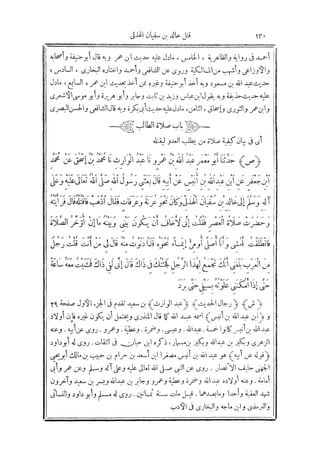 ١٣٠ قتل خالد بن سفيان الهذلى
أحمد فى رواية والظاهرية ، الخامس ، مادل عليه حديث ابن عمر وبه قال أبو حنيفة وأصحابه
والأوزاعى وأشهب من المالكية وروى عن الشافعى وأحمد واختاره البخارى ، السادس ،
حديث عبد الله بن مسعود وبه أخذ أبو حنيفة وغيره ممن أخذ بحديث ابن عمر ، السابع ، مادل
عليه حديث حذيفة وبه يقول ابن عباس وزيد بن ثابت وجابر وأبو هريرة وأبو موسى الأشعرى
وابن عمر والثورى وإسحاق ، الثامن ، مادل عليه حديث أبى بكرة وبه قال الشافعى والحسن البصرى
باب صلاة الطالب
أى فى بيان كيفية صلاة من يطلب العدو ليقتله
(ص) حَدَّثَنَا أَبُو مَعْمَرٍ عَبْدُ اللهِ بْنُ عَمْرٍو نَا عَبْدُ الْوَارِثِ نَا مُحَمَّدُ بْنُ إِسْحَقَ عَنْ مُحَمَّدِ
ابْنِ جَعْفَرٍ عَنِ ابْنِ عَبْدِ اللهِ بْنِ أُنَيْسٍ عَنْ أَبِيهِ قَالَ بَعَثَنِى رَسُولُ اللهِ صَلَّى اللهُ تَعَالَى عَلَيْهِ وَعَلَى
آلِهِ وَسَلَّمَ إِلَى خَالِدِ بْنِ سُفْيَانَ الْهُذَلِىِّ وَكَانَ نَحْوَ عُرَنَةَ وَعَرَفَاتٍ فَقَالَ اذْهَبْ فَاقْتُلْهُ قَالَ فَرَأَيْتُهُ
وَحَضَرَتْ صَلَاةُ الْعَصْرِ فَقُلْتُ إِنِّى لَأَخَافُ أَنْ يَكُونَ بَيْنِى وَبَيْنَهُ مَا إِنْ أُؤَخِّرُ الصَّلَاةَ
فَانْطَلَقْتُ أَمْشِى وَأَنَا أُصَلِّى أُومِئُ إِيمَاءً نَحْوَهُ فَلَمَّا دَنَوْتُ مِنْهُ قَالَ لِى مَنْ أَنْتَ قُلْتُ رَجُلٌ
مِنَ الْعَرَبِ بَلَغَنِى أَنَّكَ تَجْمَعُ لِهَذَا الرَّجُلِ فَجِئْتُكَ فِى ذَاكَ قَالَ إِنِّى لَفِى ذَاكَ فَمَشَيْتُ مَعَهُ سَاعَةً
حَتَّى إِذَا أَمْكَنَنِى عَلَوْتُهُ بِسَيْفِى حَتَّى بَرَدَ
(ش) (رجال الحديث) (عبد الوارث) بن سعيد تقدم فى الجزء الأول صفحة ٢٩
و (ابن عبد الله بن أنيس) اسمه عبد الله كما قال المنذرى ويحتمل أن يكون غيره فإن أولاد
عبد الله بن أنيس كانوا خمسة . عبد الله . وعيسى . وضمرة . وعطية . وعمرو . روى عن أبيه . وعنه
الزهرى وبكير بن عبد الله وبكير بن مسمار ، ذكره ابن حبان فى الثقات . روى له أبو داود
(قوله عن أبيه) هو عبد الله بن أنيس مصغرا ابن أسعد بن حرام بن حبيب بن مالك أبو يحيى
الجهنى حليف الأنصار . روى عن النبى صلى الله تعالى عليه وعلى آله وسلم وعن عمر وأبى
أمامة . وعنه أولاده عبد الله وضمرة وعطية وعمرو وجابر بن عبد الله وبسر بن سعيد وآخرون
شهد العقبة وأحدا وما بعدهما . قيل مات سنة ثمانين . روى له مسلم وأبو داود والنسائى
والترمذى وابن ماجه والبخارى فى الأدب